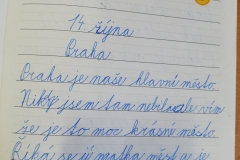 14. října
Praha
Praha je naše hlavní město.
Nikdy jsem tam nebila ale vím
že je to moc krásné město.
Říká se jí matka měst a je